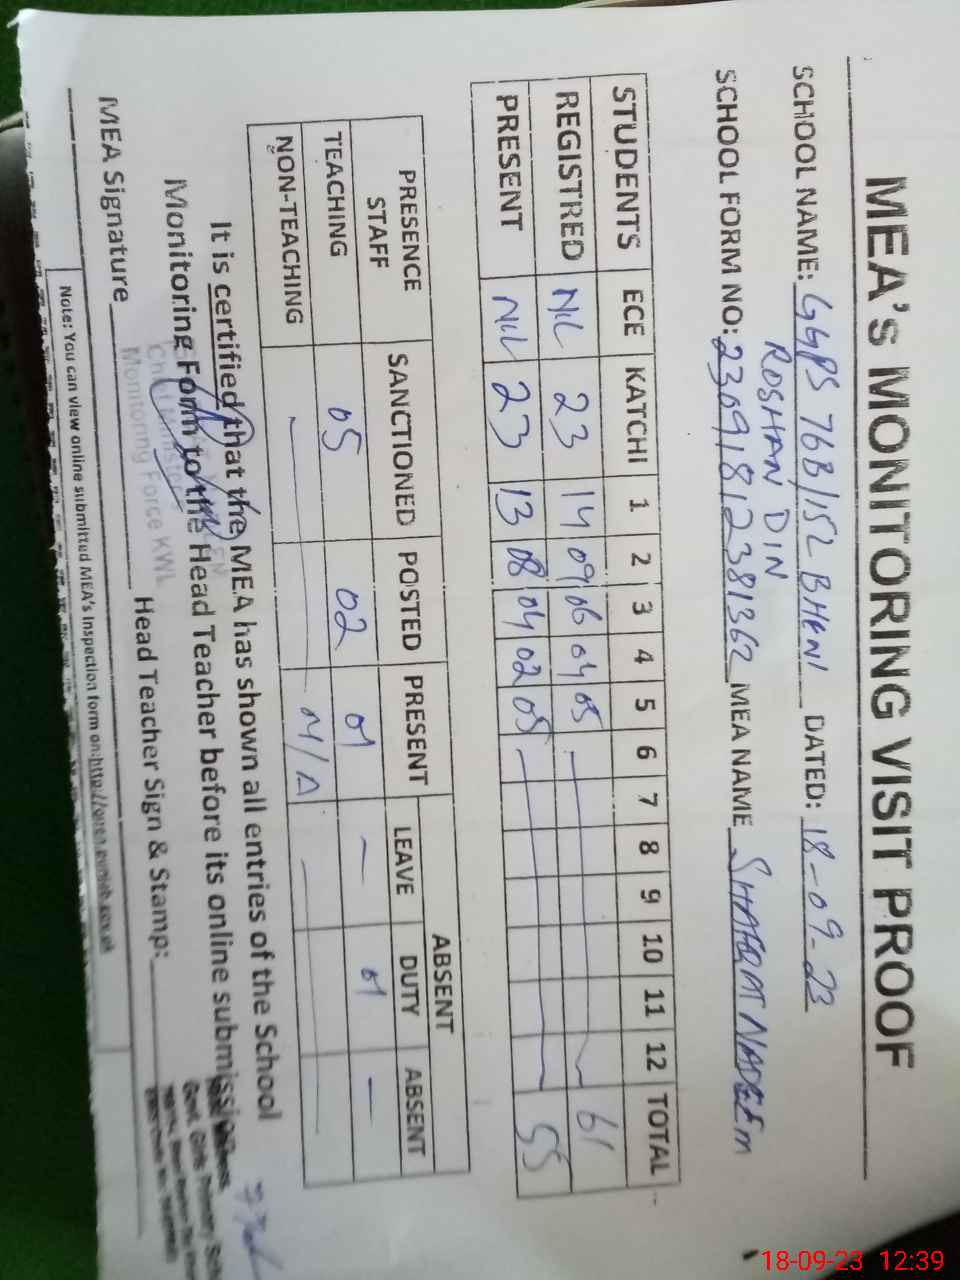 MEA's MONITORING VISIT PROOF
SCHOOL NAME: GGPS 76B/152 BHENI DATED: 18-09-23
ROSHAN DIN
SCHOOL FORM NO: 23091812381362 MEA NAME SHAFQAT NADEEM
STUDENTS ECE KATCHI 1 2 3 4 5 6 7 8 9 10 11 12 TOTAL
REGISTRED NIL 23 14 09 06 04 05 61
PRESENT NIL 23 13 08 04 02 05 55
PRESENCE STAFF SANCTIONED POSTED PRESENT ABSENT
LEAVE DUTY ABSENT
TEACHING 05 02 01 — 01 —
NON-TEACHING — N/A —
It is certified that the MEA has shown all entries of the School
Monitoring Form to the Head Teacher before its online submission.
Chief Minister
Monitoring Force KWL
MEA Signature Head Teacher Sign & Stamp:
Govt. Girls Primary
Note: You can view online submitted MEA's Inspection form on:http://open.punjab.gov.pk
18-09-23 12:39